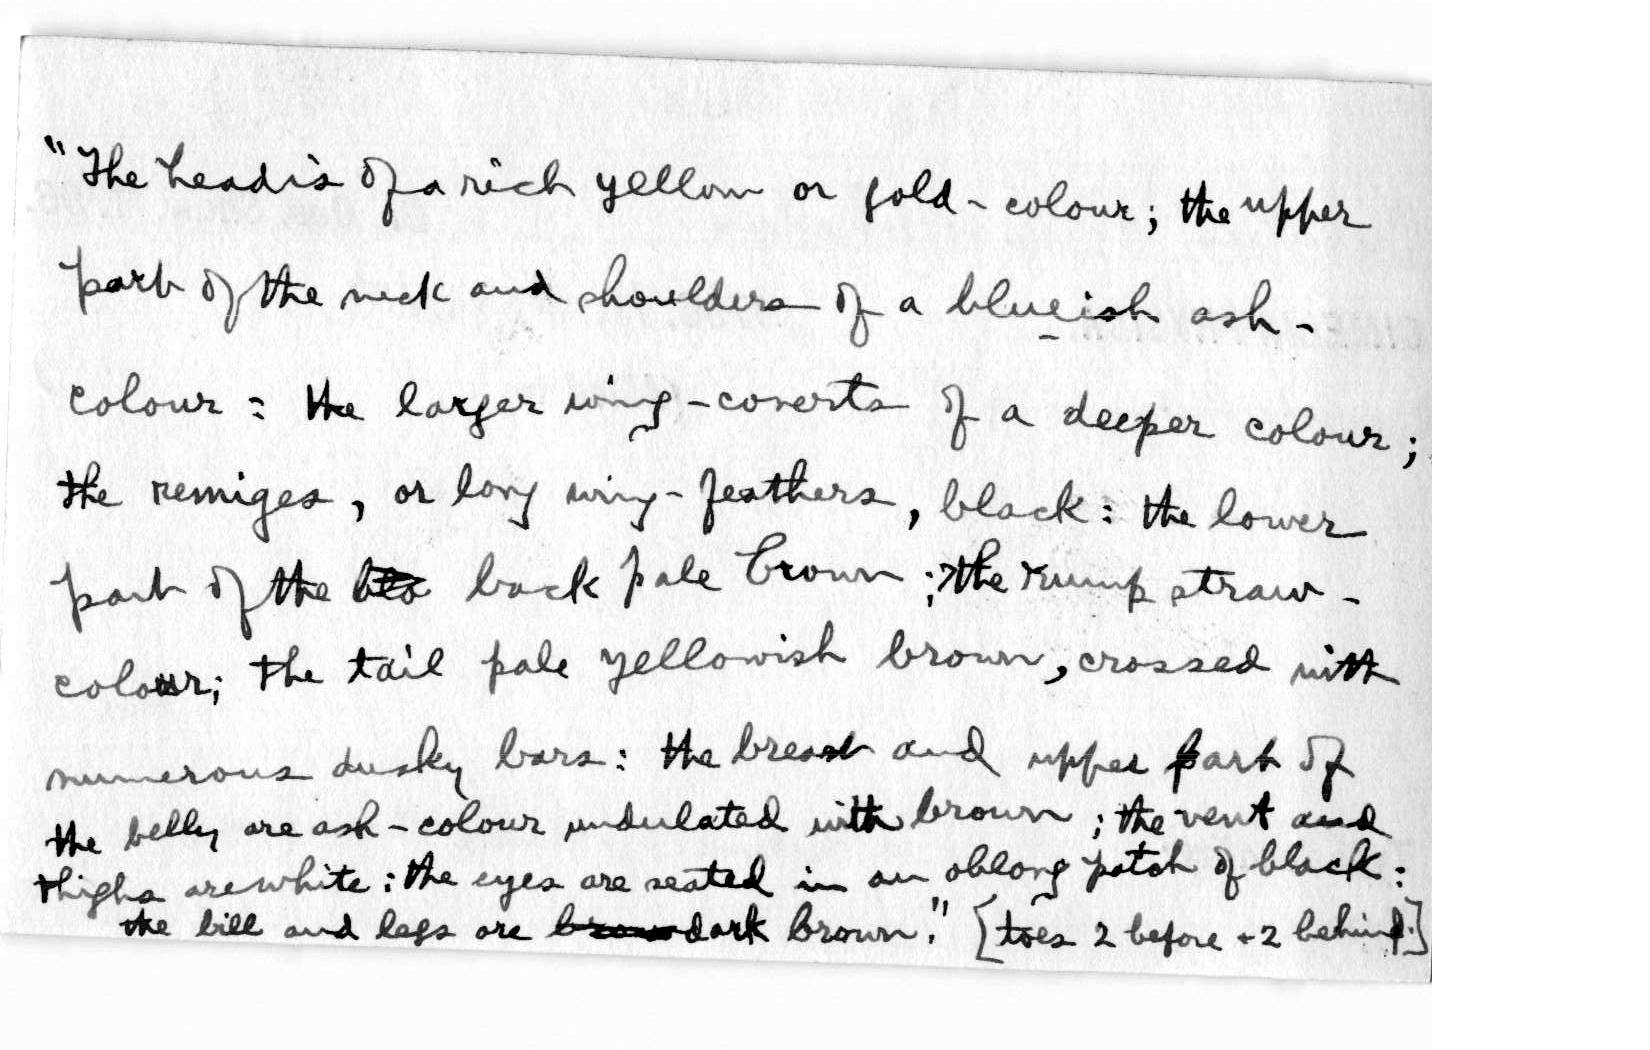 "The head is of a rich yellow or gold-colour; the upper
part of the neck and shoulders of a blueish ash-
colour: the larger wing-coverts of a deeper colour;
the remiges, or long wing-feathers, black: the lower
part of the back pale brown; the rump straw-
colour; the tail pale yellowish brown, crossed with
numerous dusky bars: the breast and upper part of
the belly are ash-colour undulated with brown; the vent and
thighs are white: the eyes are seated in an oblong patch of black:
the bill and legs are brown dark brown." [toes 2 before + 2 behind.]